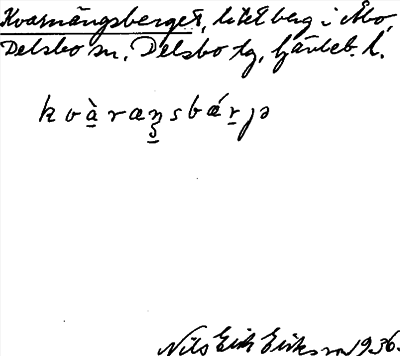 Kvarnängsberget, litet berg i Åbo,
Delsbo sn, Delsbo tg, Gävleb. l.
kvàrаŋsbárjə
Nils Erik Eriksson 1936.